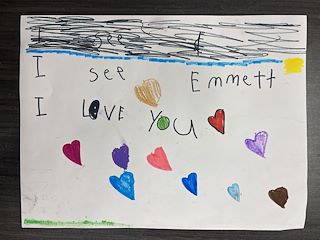 I see
I see Emmett
I LOVE YOU